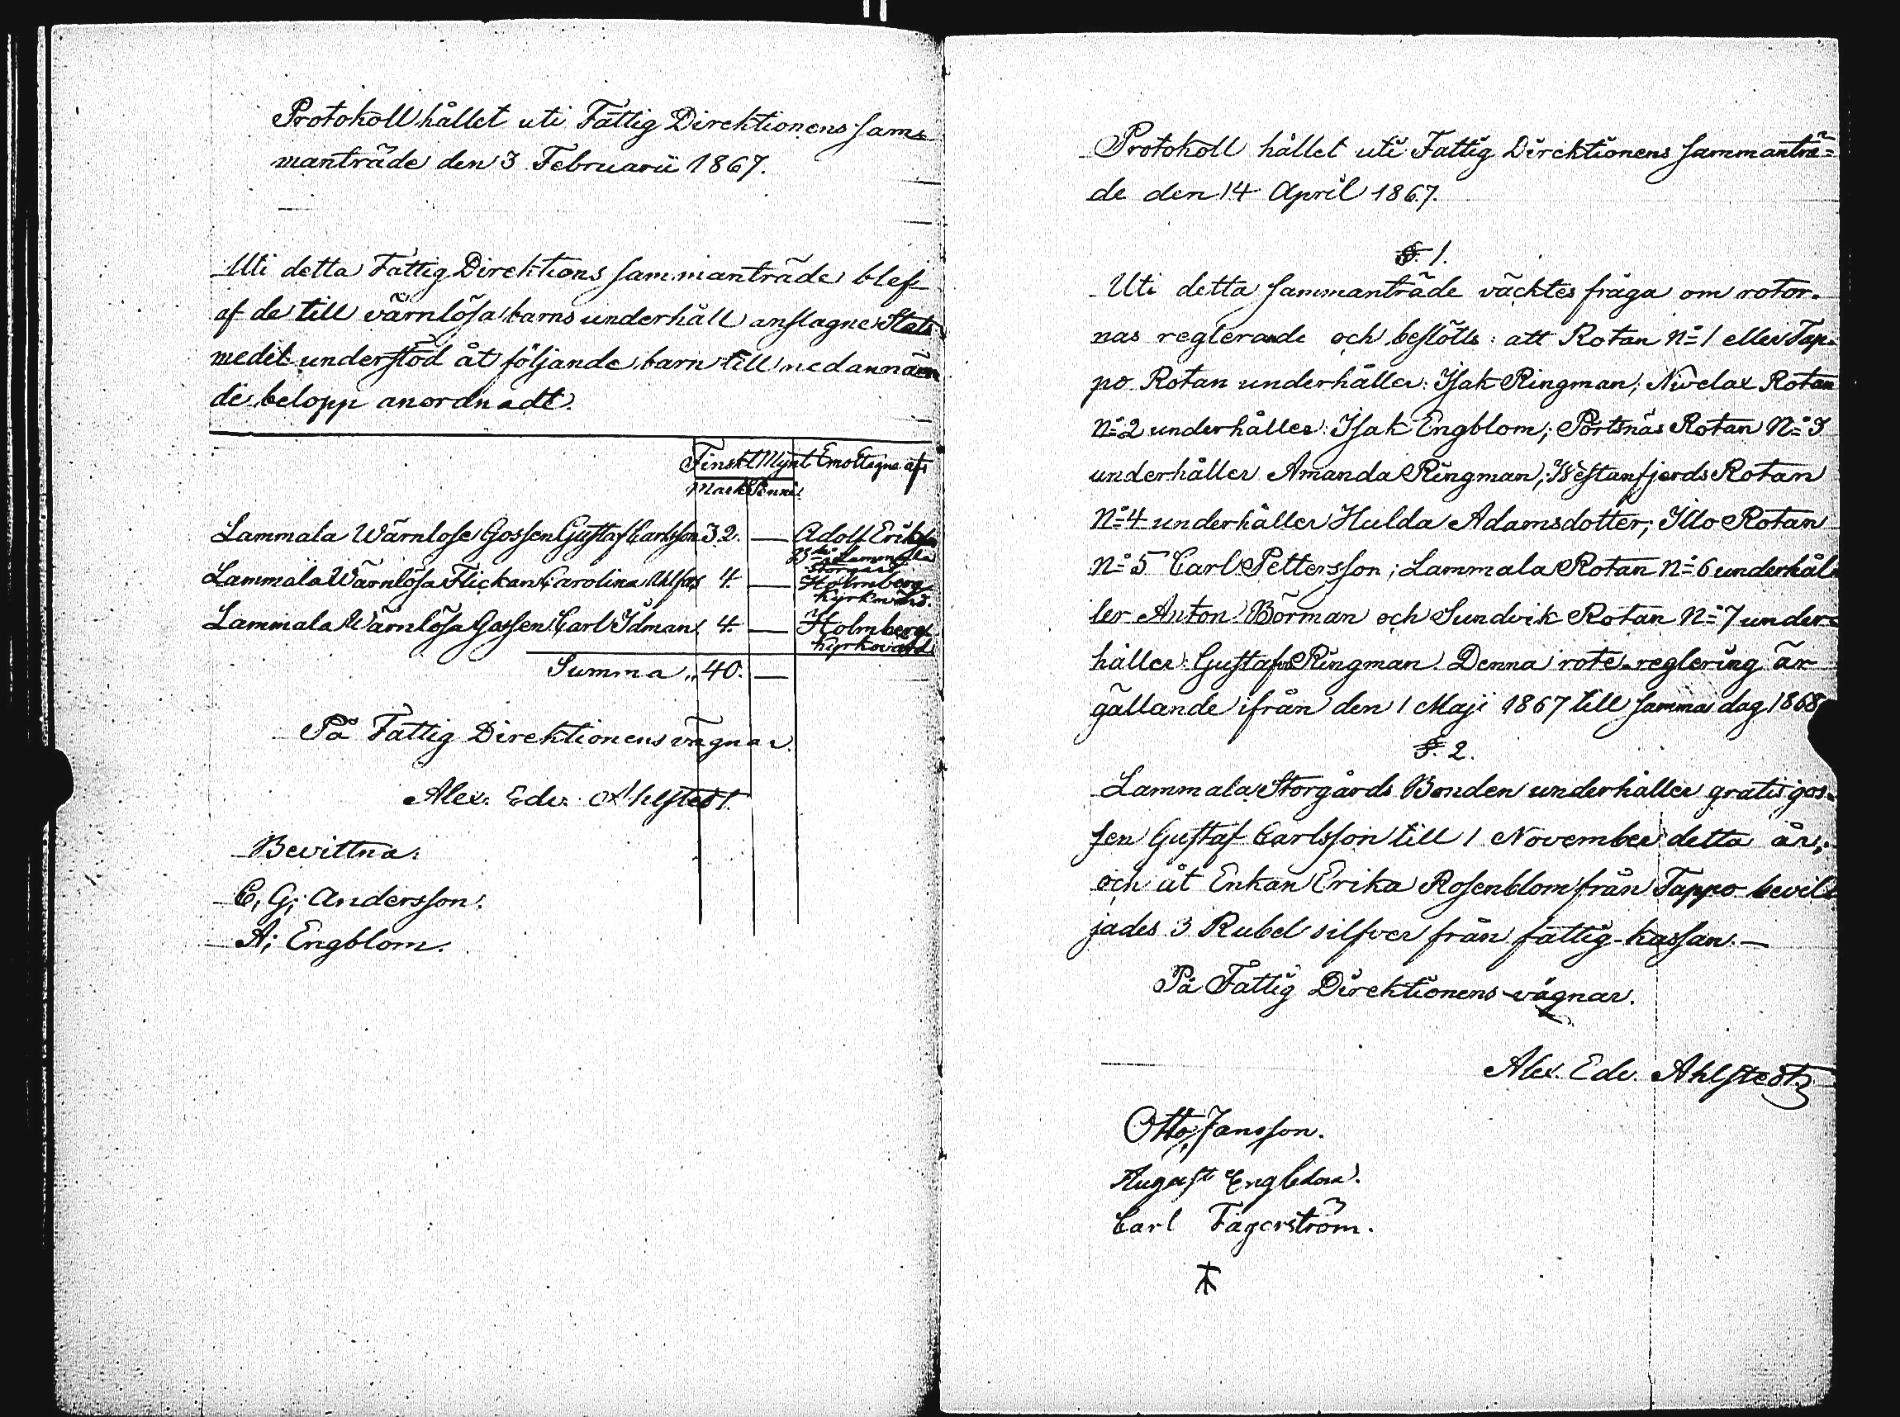 Protokoll hållet uti Fattig Direktionens sam-
manträde den 3 Februarii 1867.
Uti detta Fattig Direktions sammanträde blef
af de till värnlösa barns underhåll anslagne Stats
medel understöd åt följande barn till nedannämn
de belopp anordnadt.
Finskt Mynt Emottagne af
Mark Penni
Lammala Wärnlose Gossen Gustaf Carlsson 32. — Adolf Eriksson
Bde i Lammala
Storgård
Lammala Wärnlösa Flickan Carolina 4. — Holmberg
Kyrkovärd.
Lammala Wärnlösa Gossen Carl Idman 4. — Holmberg
Kyrkovärd
Summa „ 40. —
På Fattig Direktionens vägnar.
Alex. Edv. Ahlstedt.
Bevittna:
C, G; Andersson.
A; Engblom.
Protokoll hållet uti Fattig Direktionens sammanträ=
de den 14 April 1867.
§. 1.
Uti detta sammanträde väcktes fråga om rotor-
nas reglerande och beslöts: att Rotan No 1 eller Tap-
po Rotan underhåller: Isak Ringman; Nivelax Rotan
No 2 underhåller: Isak Engblom; Pörtsnäs Rotan No 3
underhåller Amanda Ringman; Westanfjerds Rotan
No 4 underhåller Hulda Adamsdotter; Illo Rotan
No 5 Carl Pettersson; Lammala Rotan No 6 underhål-
ler Anton Börman och Sundvik Rotan No 7 under-
håller: Gustafva Ringman. Denna rote-reglering är
gällande ifrån den 1 Maji 1867 till samma dag 1868
§. 2.
Lammala Storgårds Bonden underhåller gratis gos-
sen Gustaf Carlsson till 1 November detta år;
och åt Enkan Erika Rosenblom från Tappo bevil-
jades 3 Rubel silfver från fattig-kassan. —
På Fattig Direktionens vägnar.
Alex. Edv. Ahlstedt
Otto Jansson.
August Engblom.
Carl Fagerström.